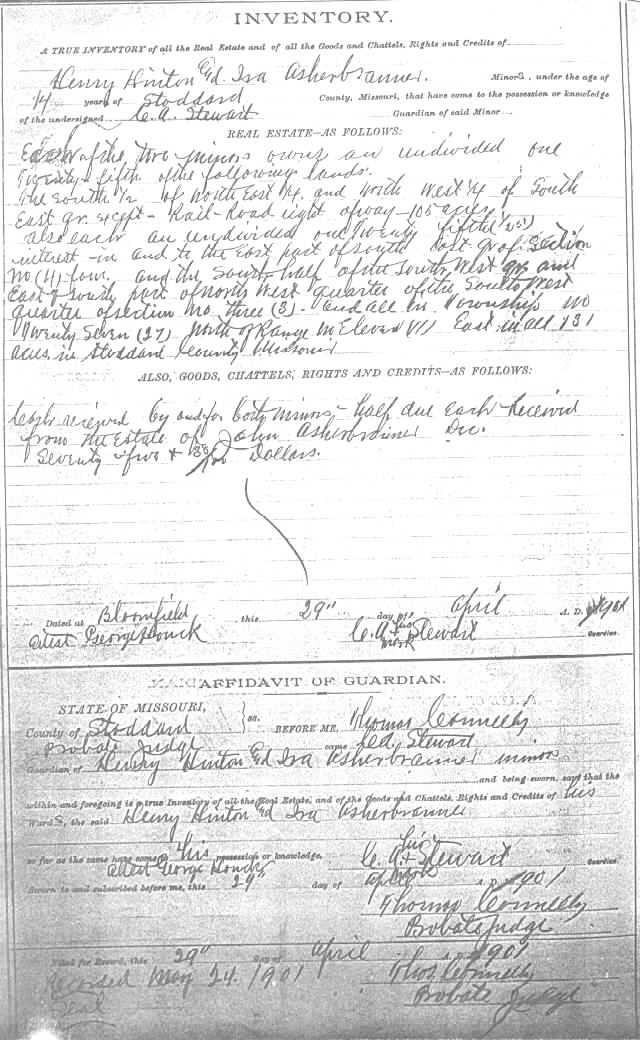 INVENTORY.
A TRUE INVENTORY of all the Real Estate and of all the Goods and Chattels, Rights and Credits of
Henry Hinton Ed. Ira Asherbranner. Minors, under the age of
14 years of Stoddard County, Missouri, that have come to the possession or knowledge
of the undersigned C. A. Stewart Guardian of said Minor
REAL ESTATE—AS FOLLOWS:
Each of the two minors owns an undivided one
Twenty-fifth of the following lands.
The South 1/2 of North East 1/4 and North West 1/4 of South
East qr. except - Rail-Road right of way - 105 acres.
also each an undivided one Twenty fifth (1/25)
interest - in and to the East part of South East qr of Section
No (4) four. and the South half of the South West qr and
East & South part of North West quarter of the South West
quarter of section No three (3) - and all in Township no
Twenty Seven (27) North of Range No Eleven East in all 131
acres in Stoddard County Missouri
ALSO, GOODS, CHATTELS, RIGHTS AND CREDITS—AS FOLLOWS:
Cash received by and for both minors - half due each - Received
from the Estate of John Asherbranner Dec.
Seventy-five & Dollars.
Dated at Bloomfield this 29" day of April A. D. 1901
attest George Houck C. A. his + mark Stewart Guardian.
AFFIDAVIT OF GUARDIAN.
STATE OF MISSOURI,
County of Stoddard ss. BEFORE ME, Thomas Connelly
Probate Judge came Stewart
Guardian of Henry Hinton Ed Ira Asherbranner minors
and being sworn, says that the
within and foregoing is a true Inventory of all the Real Estate, and of the Goods and Chattels, Rights and Credits of his
Wards, the said Henry Hinton Ed Ira Asherbranner
so far as the same have come to his possession or knowledge. C. A. his + mark Stewart Guardian.
Attest George Houck
Sworn to and subscribed before me, this 29" day of April A. D. 1901
Thomas Connelly
Probate Judge
Filed for Record, this 29" day of April 1901
Recorded May 24. 1901 Thos. Connelly
Seal Probate Judge